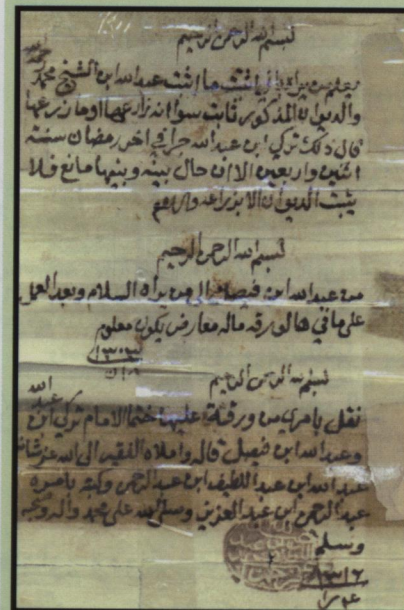 بسم الله الرحمن الرحيم
يعلم من يراه بأني اثبت ما اثبت عبدالله ابن الشيخ محمد
والديوان المذكور ثابت سوا انه زارعها او ما زرعها
قال ذلك تركي ابن عبدالله جرا في اخر رمضان سنة
اثنين واربعين الا ان حال بينه وبينها مانع فلا
يثبت الديوان الا بزراعه والسلام
بسم الله الرحمن الرحيم
من عبدالله ابن فيصل الى من يراه السلام وبعد العمل
على ما في هالورقه ماله معارض يكون معلوم
بسم الله الرحمن الرحيم
نقل بامري من ورقة عليها ختم الامام تركي ابن عبد الله
وعبدالله ابن فيصل قال واملاه الفقير الى الله عز شانه
عبدالله ابن عبداللطيف ابن عبدالرحمن وكتبه بامره
عبدالرحمن ابن عبدالعزيز وصلى الله على محمد وآله وصحبه
وسلم
١٣١٦